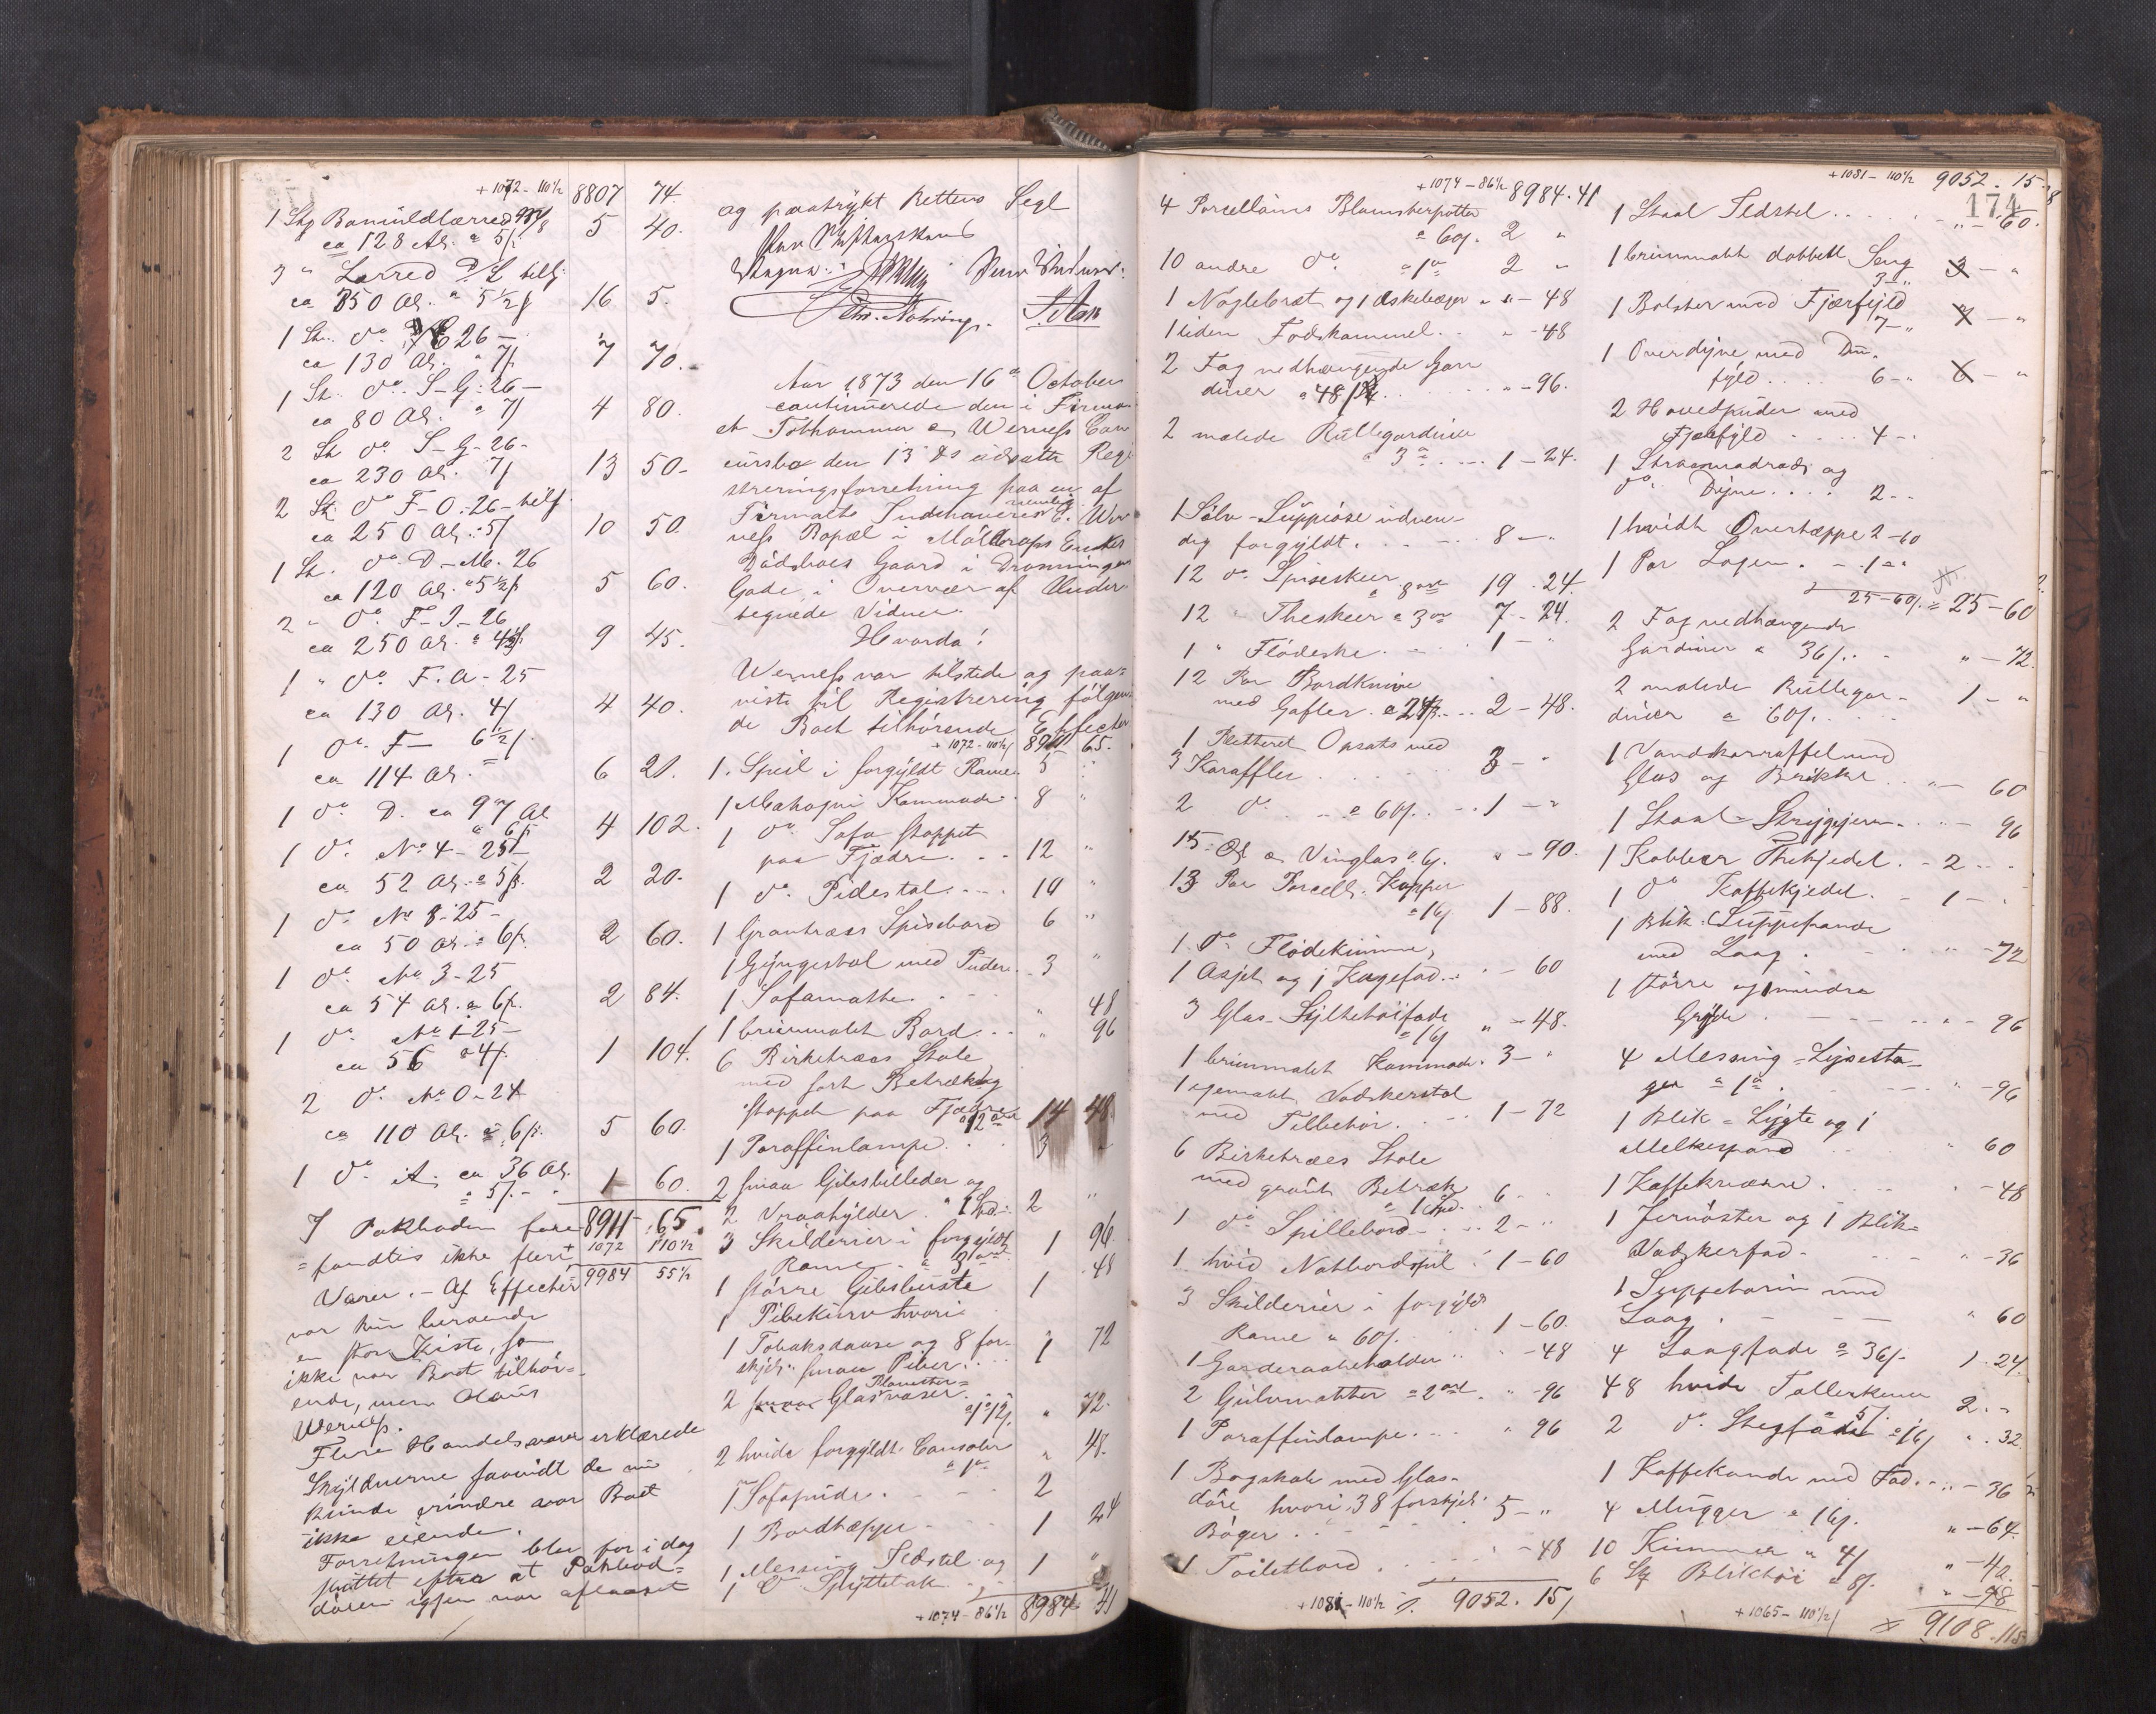 +1072-110½ 8807 74.
1 Stk Bomuldlærred
ca 128 Al. a 5ß 5 40.
3 " Lærred
ca 350 Al. a 5½ß 16 5.
1 St. do 26-
ca 130 Al. a 7ß 7 70.
1 St. do S-G-26-
ca 80 Al. a 7ß 4 80.
2 St do S-G-26-
ca 230 Al. 7ß 13 50-
2 St. do F-O-26-
ca 250 Al. 5ß 10 50.
1 St. do D-M. 26
ca 120 Al. a 5½ß 5 60.
2 " do F-I-26
ca 250 Al. a 9 45.
1 " do F.A-25
ca 130 Al. 4ß 4 40.
1 do F- 6½ß.
ca 114 Al. 6 21.
1 do D. ca 97 Al
a 6ß 4 102.
1 do No 4-25
ca 52 Al. a 5ß. 2 20.
1 do No 8-25-
ca 50 Al. a 6ß. 2 60.
1 do No 3-25
ca 54 Al. a 6ß. 2 84.
1 do No 1-25-
ca 56 a 4ß. 1 104.
2 do No 0-24
ca 110 Al. a 6ß. 5 60.
1 do A. ca 36 Al.
a 5ß. 1 60.
I Pakboden fore- 8911 65.
=fandtes ikke flere + 1072 110½
Varer. - Af Effecter 9984 55½
var kun beroende
en stor Kiste, som
ikke var Boet tilhör=
ende, men Hans
Werness.
Flere Handelsvarer erklærede
Skyldnerne saavidt de nu
kunde erindre var Boet
ikke eiende.
Forretningen blev for i dag
sluttet efter at Pakbod=
dören igjen var aflaaset
og paatrykt Rettens Segl
Aar 1873 den 16de October
continuerede den i Firma-
et Tothammer & Werness Con
cursbo den 13 ds udsatte Regi
streringsforretning paa en af
Firmaets Indehaveres nemlig E. Wer
ness Bopæl i Möllerops Enkes
Gaard i Dronningens
Gade, i Overvær af Under
tegnede Vidner.
Hvorda!
Werness var tilstede og paa=
viste til Registrering fölgen
de Boet tilhörende Effecter
+1072-110½ 8911 65.
1. Speil i forgyldt Rame. 5 "
1 Mahogni Kommode. 8 "
1 do Sofa stoppet
paa Fjædre. 12 "
1 do Pidestal. 10 "
1 Grantræes Spisebord 6 "
1 Gyngestol med Puder. 3 "
1 Sofamatte. " 48
1 brunmalet Bord. " 96
6 Birketræes Stole
med sort Betræk og
stoppet paa Fjædre 14 48.
1 Paraffinlampe. 3 "
2 smaa Gibsbilleder og
2 Vraahylder. 2 "
3 Skilderier i forgyldt
Rame 1 96
1 större Gibsbuste 1 48
1 Pibekurv hvori
1 Tobaksdaase og 8 for-
skjel. smaa Piber. 1 72
2 Blomster=
Glasvaser. " 72.
2 hvide forgyldte Consoler
" 48.
1 Sofapude. 2
1 Bordteppe 1 24
1 Messing Ildstel og 1 "
1 do Spyttebak
+1074-86½ 8984 41
+1074-86½ 8984.41
4 Porcellains Blomsterpotter
a 60ß. 2 "
10 andre do. 2 "
1 Nöglebræt og 1 Askebæger " - 48
1 liden Fodskammel. " - 48
2 Fag nedhængende Gar
diner a 48ß " - 96.
2 malede Rullegardiner
1 - 24.
1 Sölv-Suppeöse udven-
dig forgyldt. 8 - "
12 do Spiseskeer 19 . 24.
12 " Theskeer 7 - 24.
1 " Flödeske. 1 - "
12 Par Bordknive
med Gafler 2 - 48.
1 Pletteret Opsats med
3 Karaffler 3 - "
2 do a 60ß. 1 - "
15 Öl & Vinglas a 6ß. " - 90.
13 Par Porcell. Kopper
a 16ß 1 - 88.
1 do Flödekumme,
1 Asjet og 1 Kagefad. " - 60
3 Glas-Syltetöifade
a 16ß " - 48.
1 brunmalet Kommode. 3 - "
1 egemalet Vadskerstol
med Tilbehör. 1 - 72
6 Birketræes Stole
med grönt Betræk 6 - "
1 do Spillebord 2 - "
1 hvid 1 - 60
3 Skilderier i forgyldt
Rame a 60ß. 1 - 60.
1 Garderobeholder " - 48
2 Gulvmatter " - 96
1 Paraffinlampe. " 96
1 Bogskab med Glas-
döre hvori 38 forskjel. 5 - "
Böger
1 Toiletbord " - 48
+1081-110½ 9052.15
+1081-110½ 9052.15
174
1 Staal Ildstel " - 60.
1 brunmalet dobbelt Seng
3 - "
1 Bolster med Fjærfyld
7 - "
1 Overdyne med Dun-
fyld 6 - "
2 Hovedpuder med
Fjærfyld 4 - "
1 Straamadrads og
do Dyne 2 - "
1 hvidt Overtæppe 2 - 60
1 Par Lagen. 1 - "
25-60ß. = 25-60
2 Fag nedhængende
Gardiner a 36ß. " - 72.
2 malede Rullegar-
diner a 60ß. 1 - "
1 Vandkaraffel med
Glas og Bakke " - 60
1 Staal-Strygjern. " - 96
1 Kobber Thekjedel. - 2 - "
1 do Kaffekjedel. - 1 - "
1 Blik-Suppepande
med Laag. " - 72
1 större og 1 mindre
Gryde " - 96
4 Messing-Lysesta-
ger " - 96
1 Blik-Lygte og 1
Melkespand " 60
1 Kaffekværn. " - 48
1 og 1 Blik-
Vadskerfad. " - 36
1 Suppeterin med
Laag. " 60
4 Laagfade a 36ß. 1.24.
48 hvide Tallerkener
2. "
2 do Stegfade a 16ß " . 32.
1 Kaffekande med Fad. " - 36
4 Mugger a 16ß. " - 64.
10 Kummer a 4ß " - 40.
6 St Bliktöi a 8ß. " - 48
+1065-110½ 9108.115